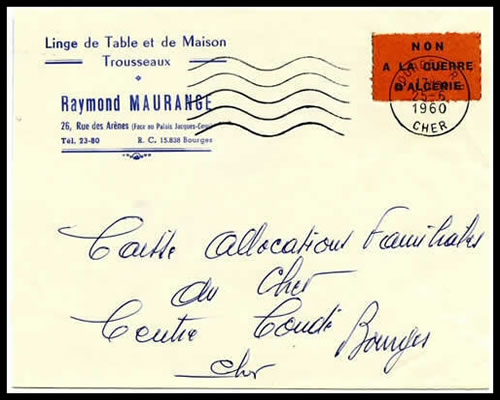 Linge de Table et de Maison
Trousseaux
Raymond MAURANGE
26, Rue des Arènes (Face au Palais Jacques-Cœur)
Tél. 23-80 R. C. 15.838 Bourges
NON
A LA GUERRE
D'ALGERIE
BOURGES R.P.
25-6
1960
CHER
Caisse Allocations Familiales
du Cher
Centre Condé Bourges
Cher